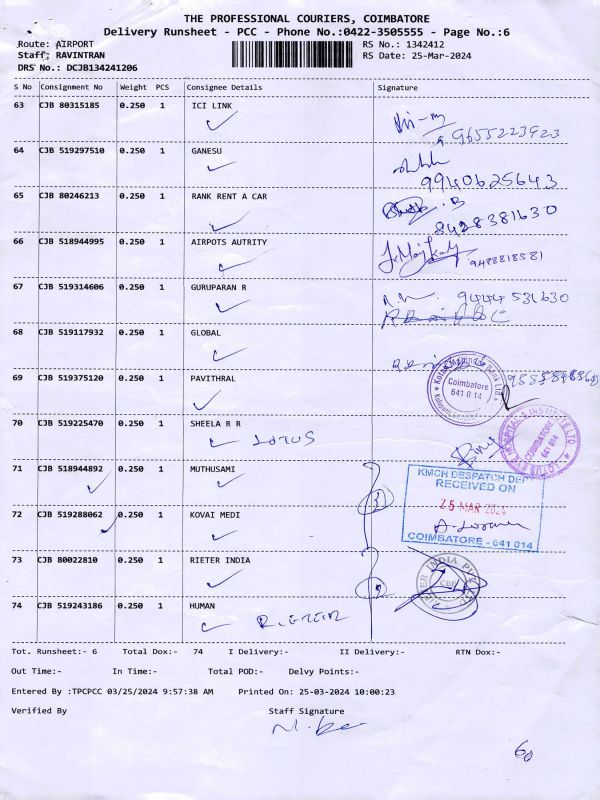 THE PROFESSIONAL COURIERS, COIMBATORE
Delivery Runsheet - PCC - Phone No.:0422-3505555 - Page No.:6
Route: AIRPORT RS No.: 1342412
Staff: RAVINTRAN RS Date: 25-Mar-2024
DRS No.: DCJB134241206
S No Consignment No Weight PCS Consignee Details Signature
63 CJB 80315185 0.250 1 ICI LINK
9655223923
64 CJB 519297510 0.250 1 GANESU
9940625643
65 CJB 80246213 0.250 1 RANK RENT A CAR
8428381630
66 CJB 518944995 0.250 1 AIRPOTS AUTRITY
9488818581
67 CJB 519314606 0.250 1 GURUPARAN R
9444531630
68 CJB 519117932 0.250 1 GLOBAL
69 CJB 519375120 0.250 1 PAVITHRAL
Coimbatore
641 014
70 CJB 519225470 0.250 1 SHEELA R R
LOTUS
COIMBATORE
641 014
71 CJB 518944892 0.250 1 MUTHUSAMI
KMCH DESPATCH DEPT
RECEIVED ON
25 MAR 2024
COIMBATORE - 641 014
72 CJB 519288062 0.250 1 KOVAI MEDI
73 CJB 80022810 0.250 1 RIETER INDIA
74 CJB 519243186 0.250 1 HUMAN
RIETER
Tot. Runsheet:- 6 Total Dox:- 74 I Delivery:- II Delivery:- RTN Dox:-
Out Time:- In Time:- Total POD:- Delvy Points:-
Entered By :TPCPCC 03/25/2024 9:57:38 AM Printed On: 25-03-2024 10:00:23
Verified By Staff Signature
60